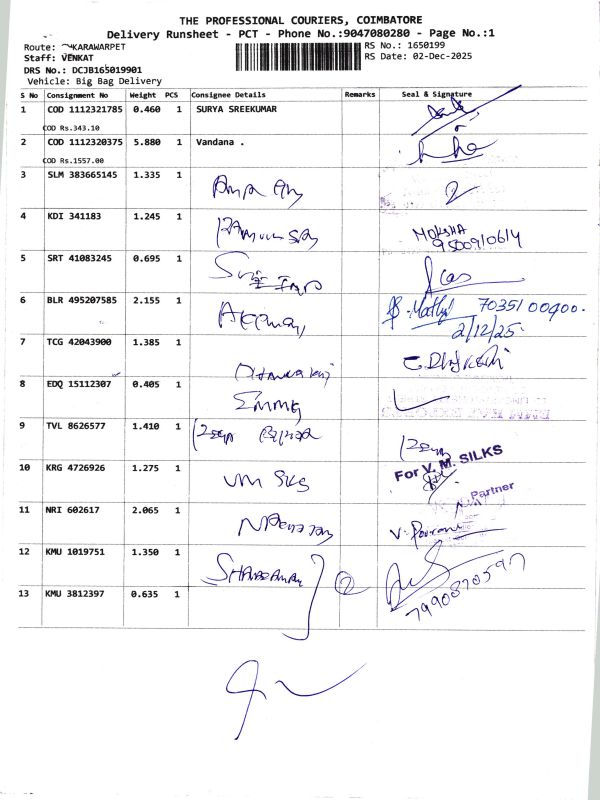 THE PROFESSIONAL COURIERS, COIMBATORE
Delivery Runsheet - PCT - Phone No.:9047080280 - Page No.:1
Route: KARAWARPET
RS No.: 1650199
Staff: VENKAT
RS Date: 02-Dec-2025
DRS No.: DCJB165019901
Vehicle: Big Bag Delivery
S No Consignment No Weight PCS Consignee Details Remarks Seal & Signature
1 COD 1112321785 0.460 1 SURYA SREEKUMAR
COD Rs.343.10
2 COD 1112320375 5.880 1 Vandana .
COD Rs.1557.00
3 SLM 383665145 1.335 1
4 KDI 341183 1.245 1 MOKSHA
9500910614
5 SRT 41083245 0.695 1
6 BLR 495207585 2.155 1 7035100400.
2/12/25.
7 TCG 42043900 1.385 1
8 EDQ 15112307 0.405 1
9 TVL 8626577 1.410 1
10 KRG 4726926 1.275 1 VM SKS For V. M. SILKS
Partner
11 NRI 602617 2.065 1
12 KMU 1019751 1.350 1 2
13 KMU 3812397 0.635 1 7990870597